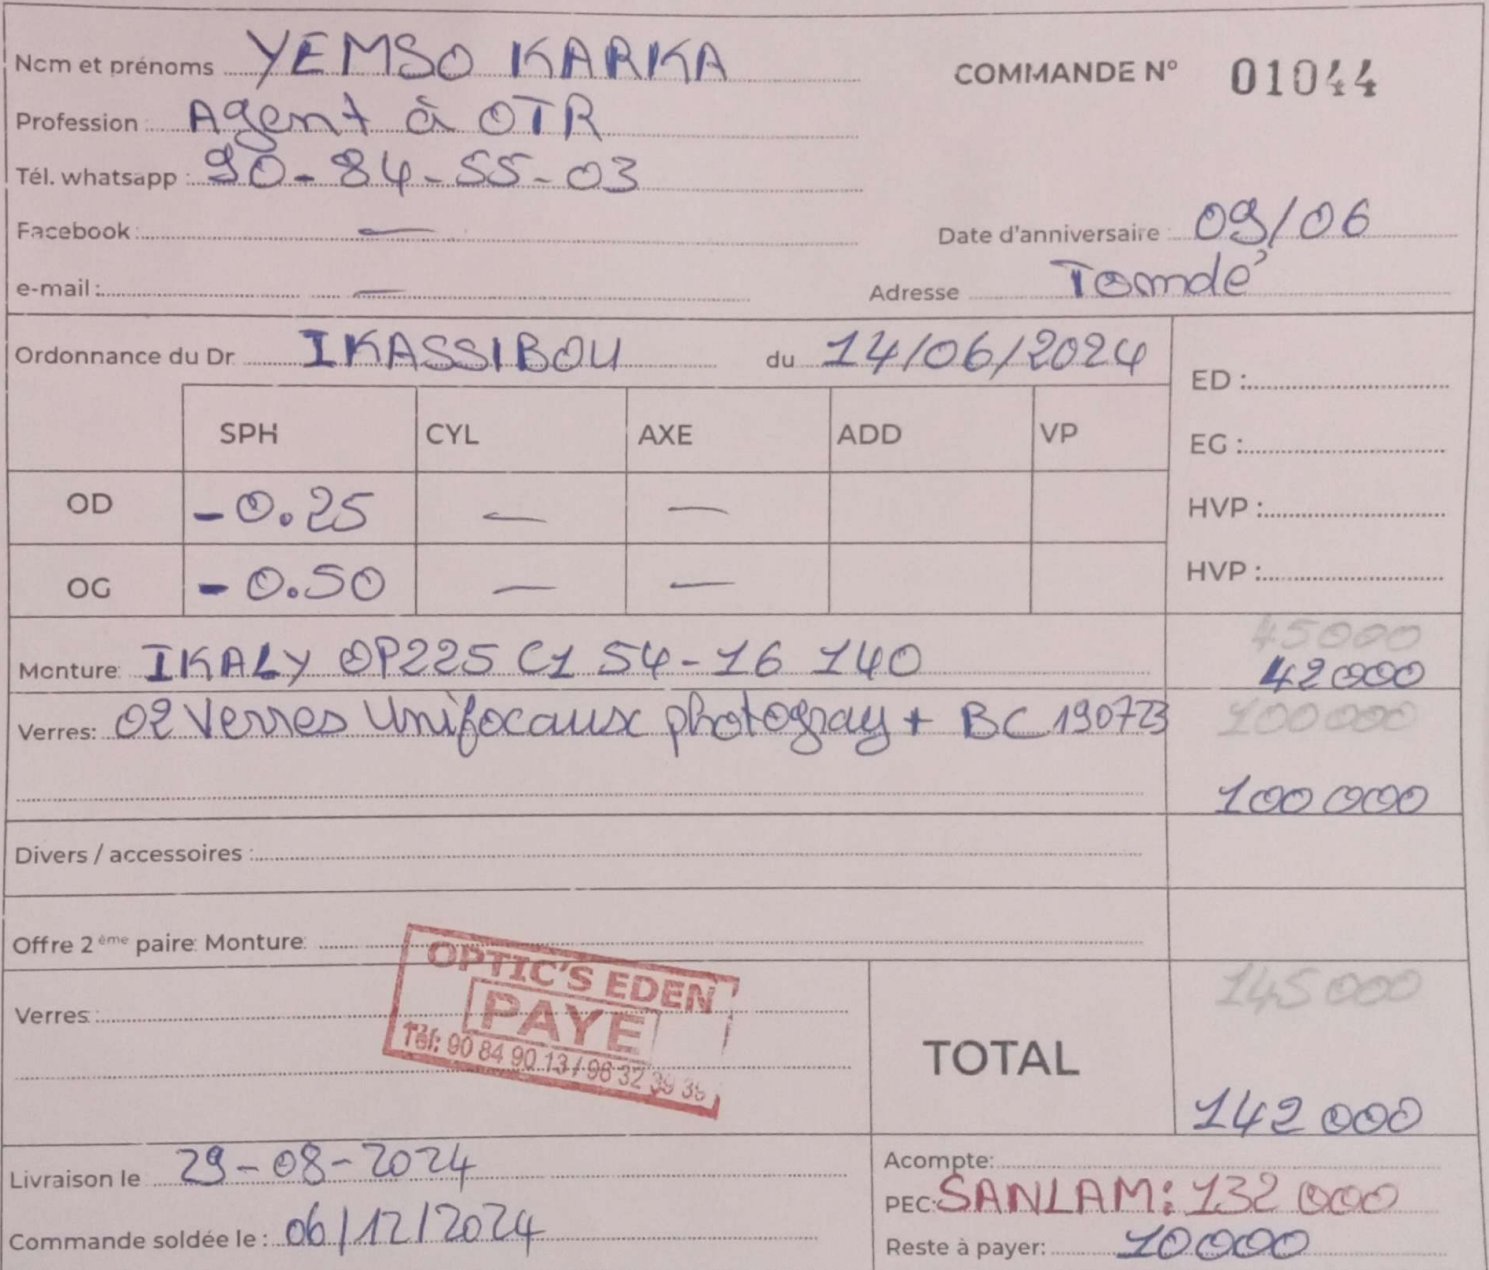 Nom et prénoms YEMSO KARKA
COMMANDE N° 01044
Profession : Agent à OTR
Tél. whatsapp : 90-84-55-03
Facebook : —
Date d'anniversaire 09/06
e-mail : —
Adresse Tomdé
Ordonnance du Dr IKASSIBOU du 14/06/2024
ED :
SPH CYL AXE ADD VP
EG :
OD -0.25 — —
HVP :
OG -0.50 — —
HVP :
45000
Monture: IKALY OP225 C1 54-16 140 42000
Verres: 02 Verres Unifocaux photogray + BC 190723 100000
100 000
Divers / accessoires :
Offre 2ème paire: Monture:
OPTIC'S EDEN
PAYE
Tél: 90 84 90 13 / 96 32 39 35
Verres :
145 000
TOTAL
142 000
Livraison le 29-08-2024
Acompte:
PEC: SANLAM: 132 000
Commande soldée le : 06/12/2024
Reste à payer: 10000